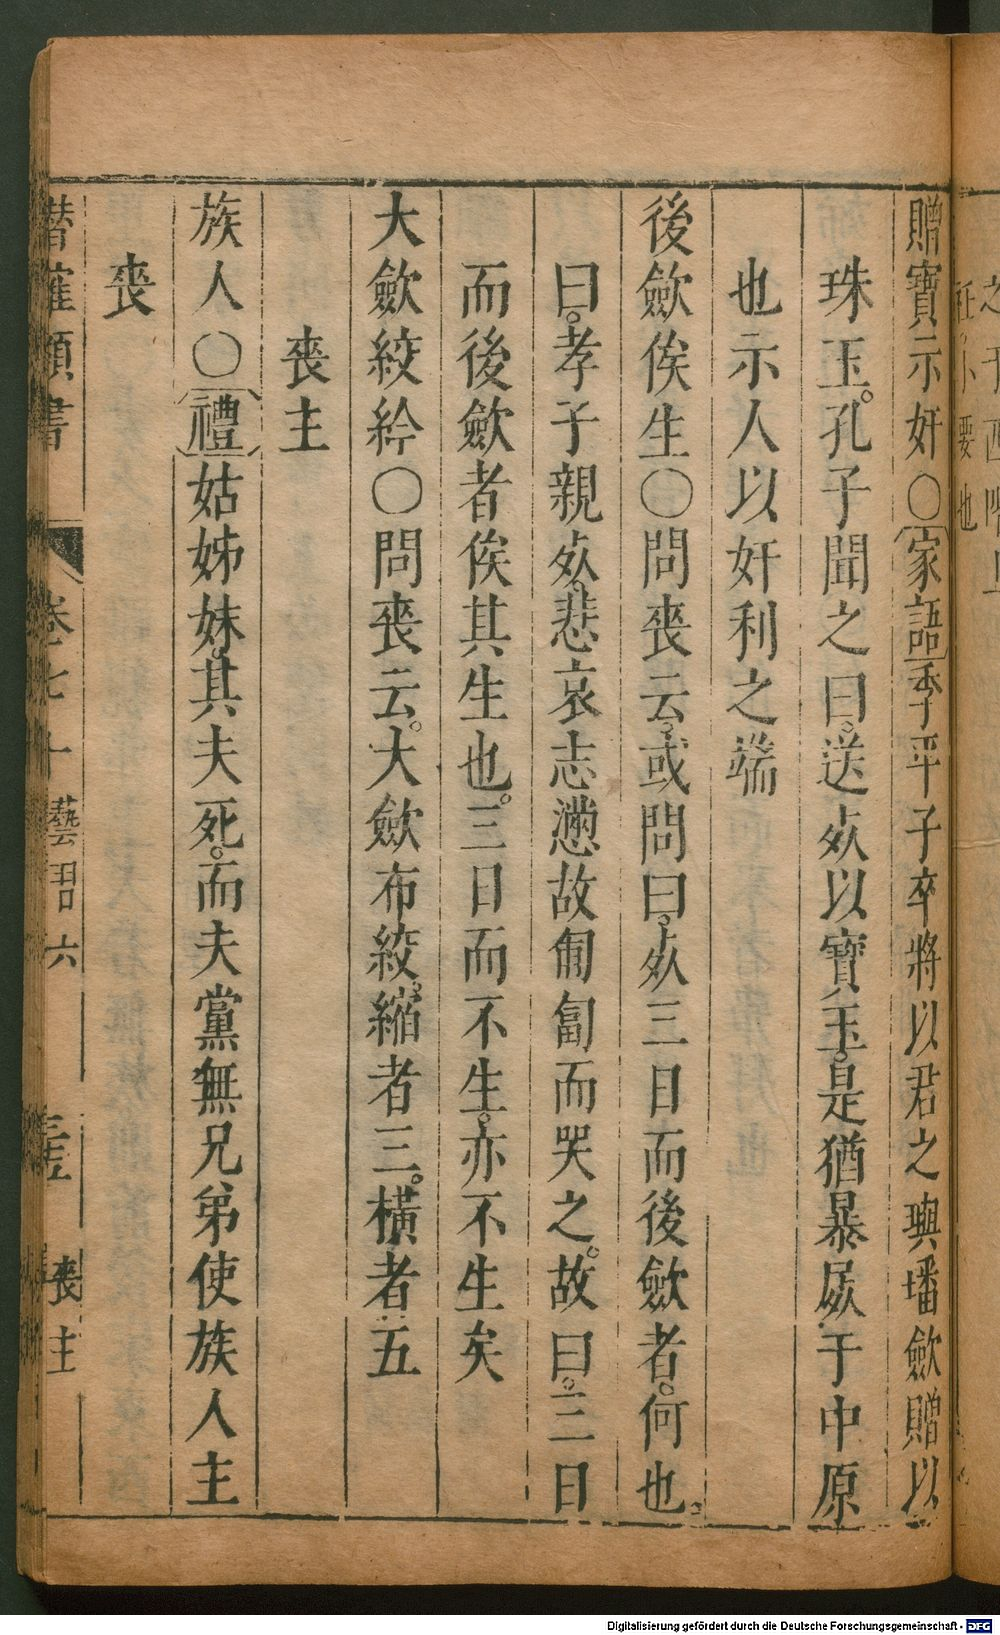 贈寶示奸○家語季平子卒將以君之璵璠歛贈以
珠玉。孔子聞之曰。送死以寶玉。是猶暴尸于中原
也示人以奸利之端
後歛俟生○問喪云。或問曰。死三日而後歛者。何也。
曰。孝子親死。悲哀志懣故匍匐而哭之。故曰。三日
而後歛者俟其生也。三日而不生。亦不生矣
大歛絞紟○問喪云。大歛布絞。縮者三。橫者五
喪主
族人○禮姑姊妹。其夫死。而夫黨無兄弟使族人主
喪
潛確類書
卷七十
藝習六
喪主
Digitalisierung gefördert durch die Deutsche Forschungsgemeinschaft - DFG